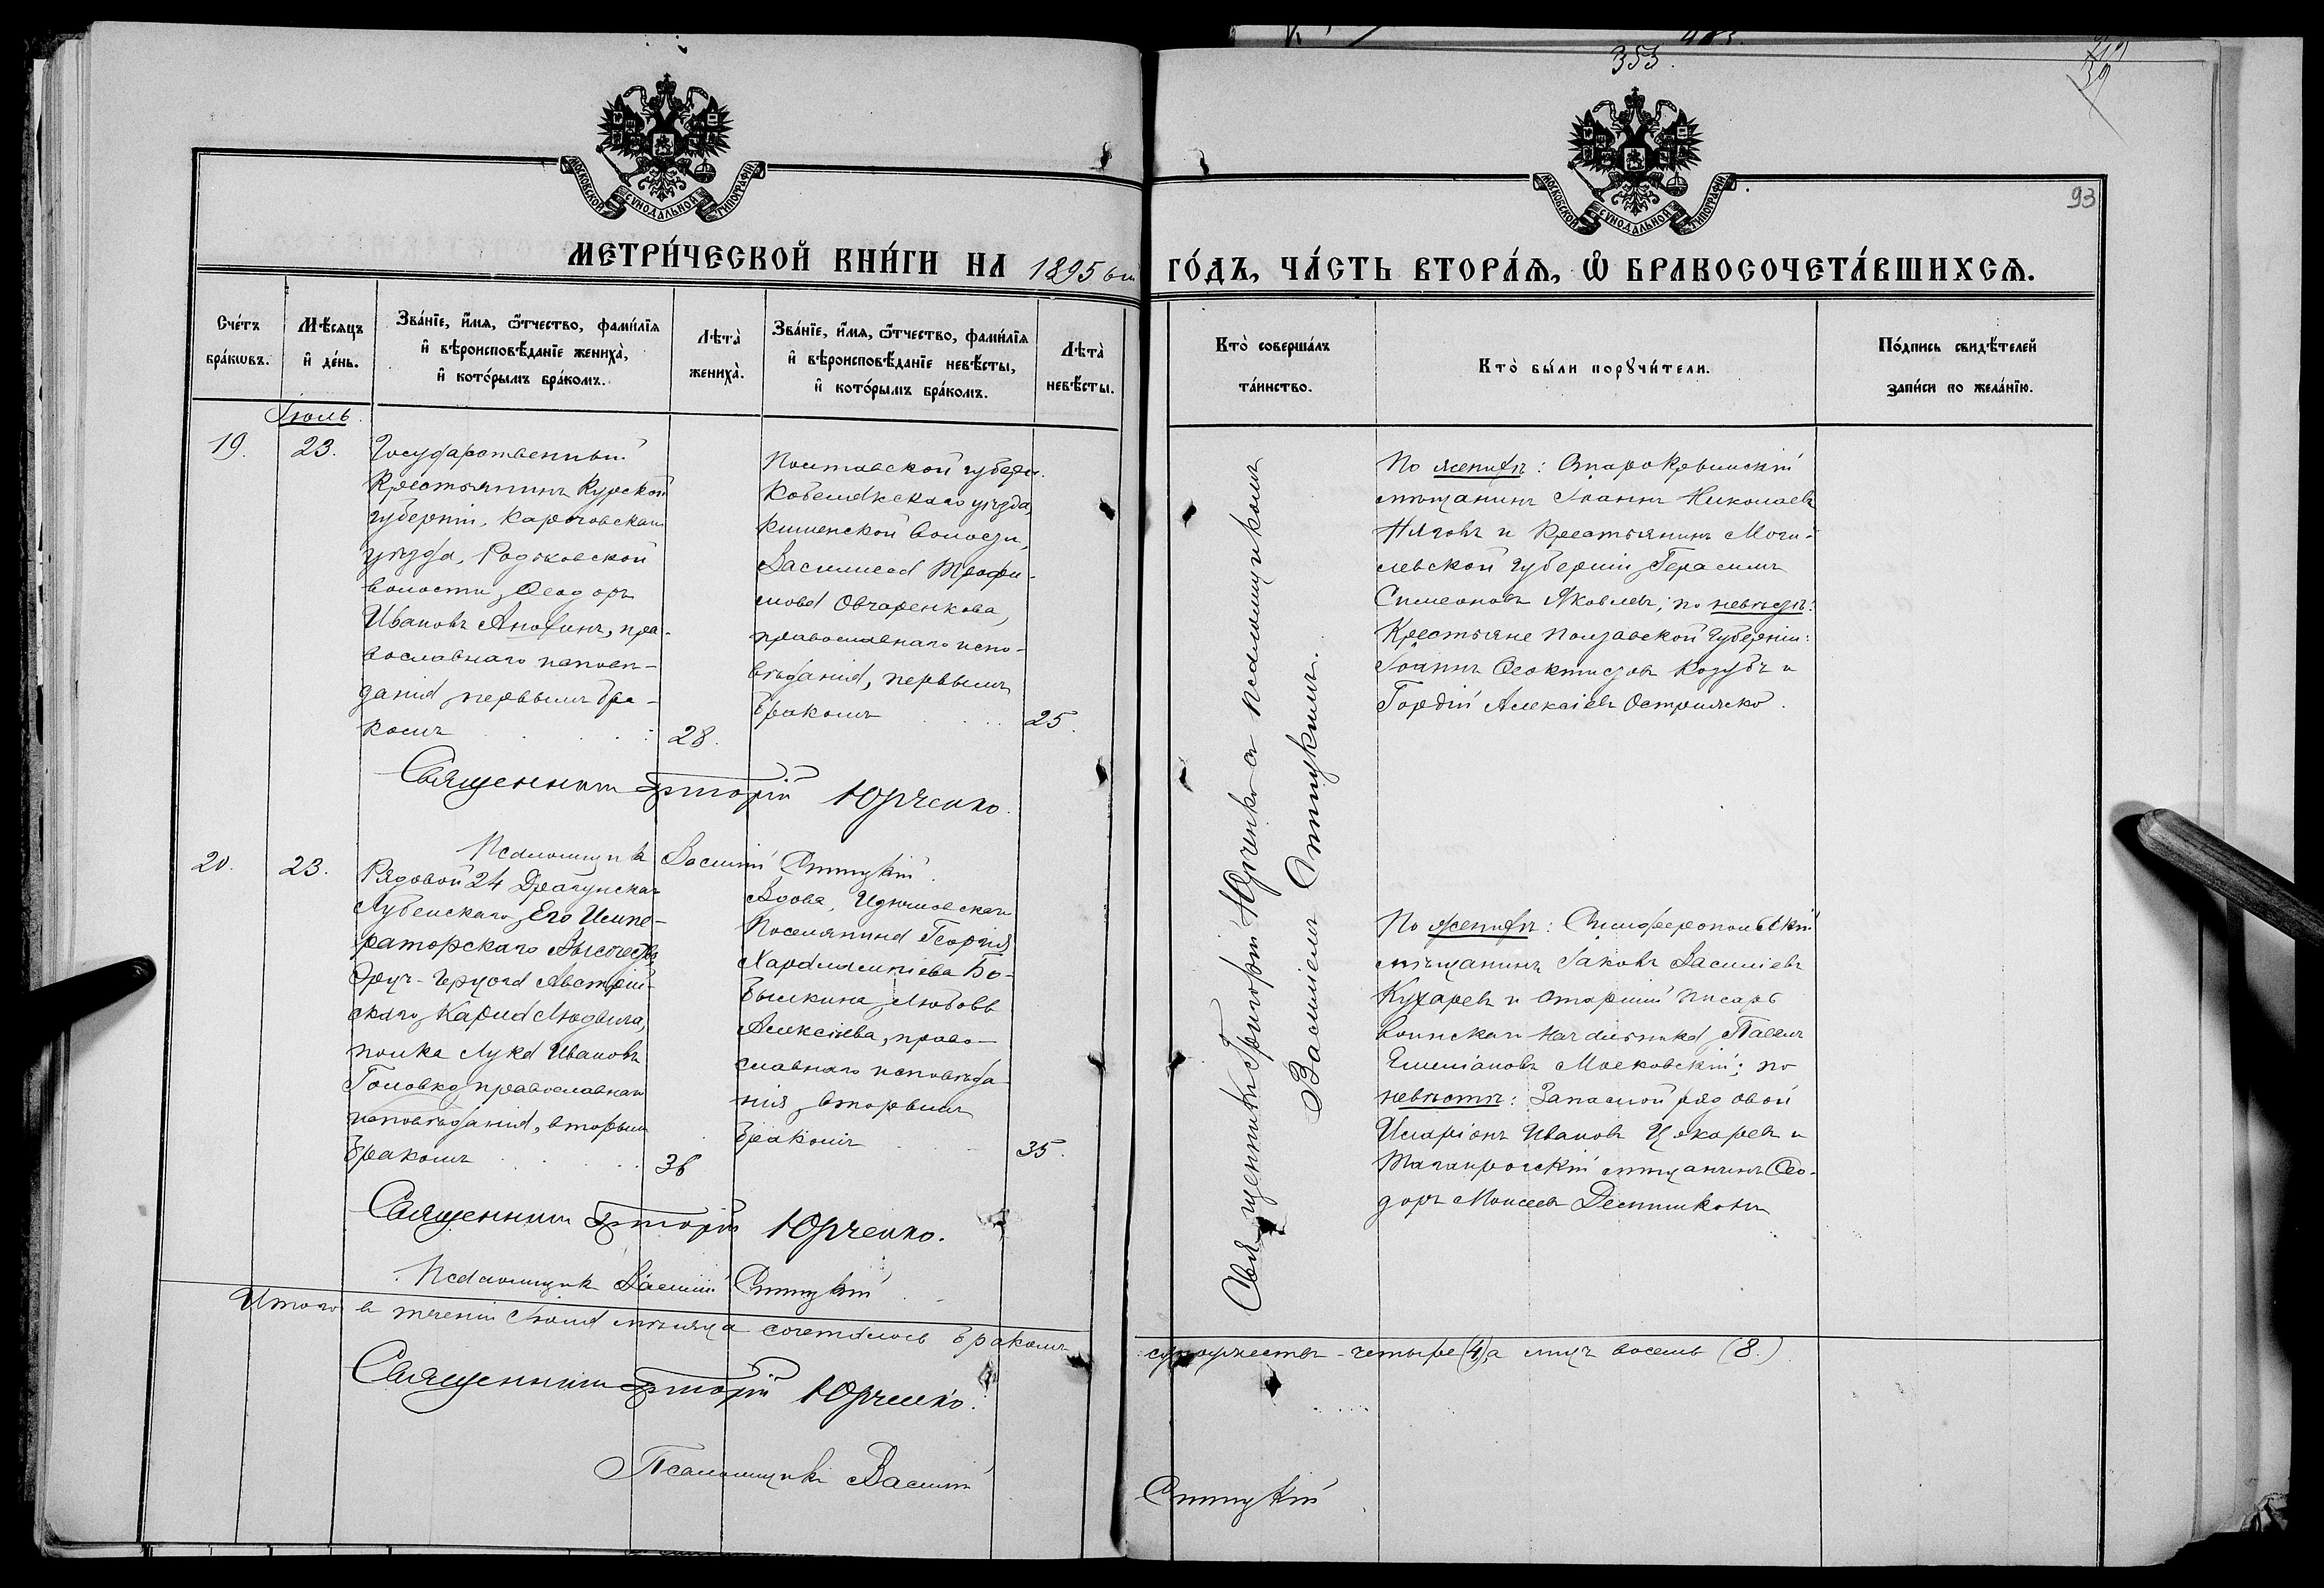 353.
93
МОСКОВСКОЙ СѴНОДАЛЬНОЙ ТИПОГРАФІИ
МОСКОВСКОЙ СѴНОДАЛЬНОЙ ТИПОГРАФІИ
МЕТРИ́ЧЕСКОЙ КНИ́ГИ НА 1895 ый ГО́ДЪ, ЧА́СТЬ ВТОРА́Ѧ, Ѽ БРАКОСОЧЕТА́ВШИХСѦ.
Сче́тъ
бра́кѡвъ.
Мѣ́сяцъ
и҆ де́нь.
Зва́нїе, и҆́мя, ѻ҆́тчество, фами́лїя
и҆ вѣроисповѣ́данїе жениха̀,
и҆ кото́рымъ бра́комъ.
Лѣта̀
жениха̀.
Зва́нїе, и҆́мя, ѻ҆́тчество, фами́лїя
и҆ вѣроисповѣ́данїе невѣ́сты,
и҆ кото́рымъ бра́комъ.
Лѣта̀
невѣ́сты.
Кто̀ соверша́лъ
та́инство.
Кто̀ бы́ли порꙋчи́тели.
По́дпись свидѣ́телей
за́писи по жела́нїю.
Іюль
19.
23.
Государственный
Крестьянинъ Курской
губерніи, Карочовскаго
уѣзда,
волости, Ѳеодоръ
Ивановъ Анохинъ, пра-
вославнаго исповѣ-
данія, первымъ бра-
комъ
28.
Полтавской губерн.
Кобелякскаго уѣзда,
Кишенской волости,
Василиса Трофи-
мова Овчаренкова,
православнаго испо-
вѣданія, первымъ
бракомъ
25.
Священникъ Григорій Юрченко и псаломщикомъ
Василіемъ
По женихѣ: Старокрымскій
мѣщанинъ Іоаннъ Николаевъ
Няговъ и Крестьянинъ Моги-
левской губерніи Герасимъ
Симеоновъ Яковлевъ; по невѣстѣ:
Крестьяне Полтавской губерніи:
Іоаннъ Ѳеоктистовъ Козубъ и
Гордій Алексіевъ
Священникъ Григорій Юрченко.
Псаломщикъ Василій
20.
23.
Рядовой 24 Драгунскаго
Лубенскаго Его Импе-
раторскаго Высочества
Эрцъ-Герцога Австрій-
скаго Карла Людвига,
полка Лука Ивановъ
Головко, православнаго
исповѣданія, вторымъ
бракомъ
36
Вдова,
поселянина Георгія
Харалампіева Бо-
былкина Любовь
Алексѣева, право-
славнаго исповѣда-
нія, вторымъ
бракомъ
35.
По женихѣ: Симферопольскій
мѣщанинъ Іаковъ Василіевъ
Кухаревъ и старшій писарь
воинскаго начальника Павелъ
Емеліановъ Московскій; по
невѣстѣ: Запасной рядовой
Иларіонъ Ивановъ и
Таганрогскій мѣщанинъ Ѳео-
доръ Моисеевъ
Священникъ Григорій Юрченко.
Псаломщикъ Василій
Итого въ теченіи Іюля мѣсяца сочеталось бракомъ супружествъ - четыре (4), а лицъ восемь (8.)
Священникъ Григорій Юрченко.
Псаломщикъ Василій